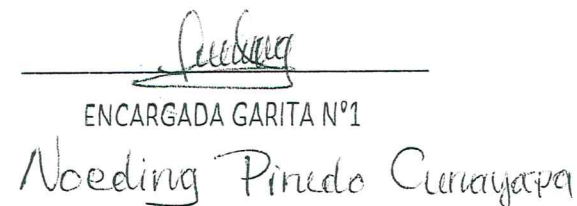 ENCARGADA GARITA Nº1
Noeding Pinedo Cunayapa